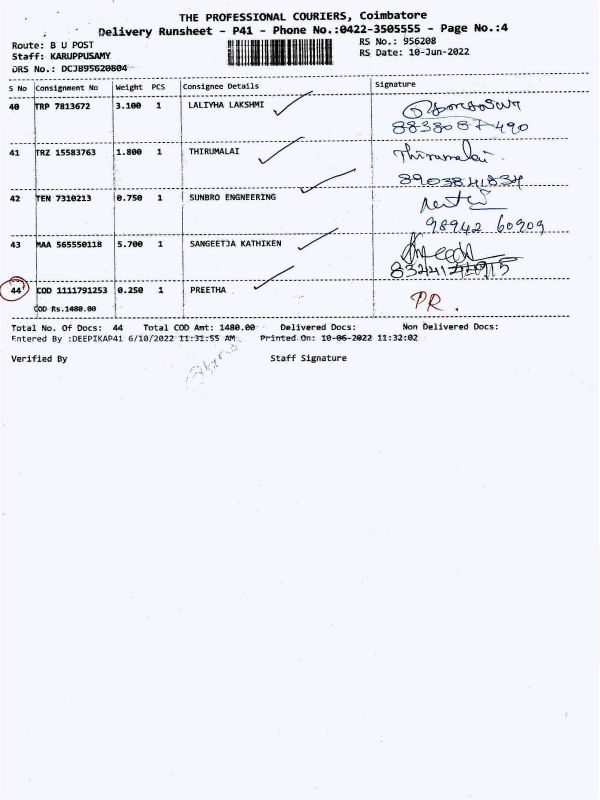 THE PROFESSIONAL COURIERS, Coimbatore
Delivery Runsheet - P41 - Phone No.:0422-3505555 - Page No.:4
Route: B U POST RS No.: 956208
Staff: KARUPPUSAMY RS Date: 10-Jun-2022
DRS No.: DCJB95620804
S No Consignment No Weight PCS Consignee Details Signature
40 TRP 7813672 3.100 1 LALIYHA LAKSHMI
41 TRZ 15583763 1.800 1 THIRUMALAI Thirumalai
8903841834
42 TEN 7310213 0.750 1 SUNBRO ENGNEERING
98942 60909
43 MAA 565550118 5.700 1 SANGEETJA KATHIKEN
44 COD 1111791253 0.250 1 PREETHA PR.
COD Rs.1480.00
Total No. Of Docs: 44 Total COD Amt: 1480.00 Delivered Docs: Non Delivered Docs:
Entered By :DEEPIKAP41 6/10/2022 11:31:55 AM Printed On: 10-06-2022 11:32:02
Verified By Staff Signature